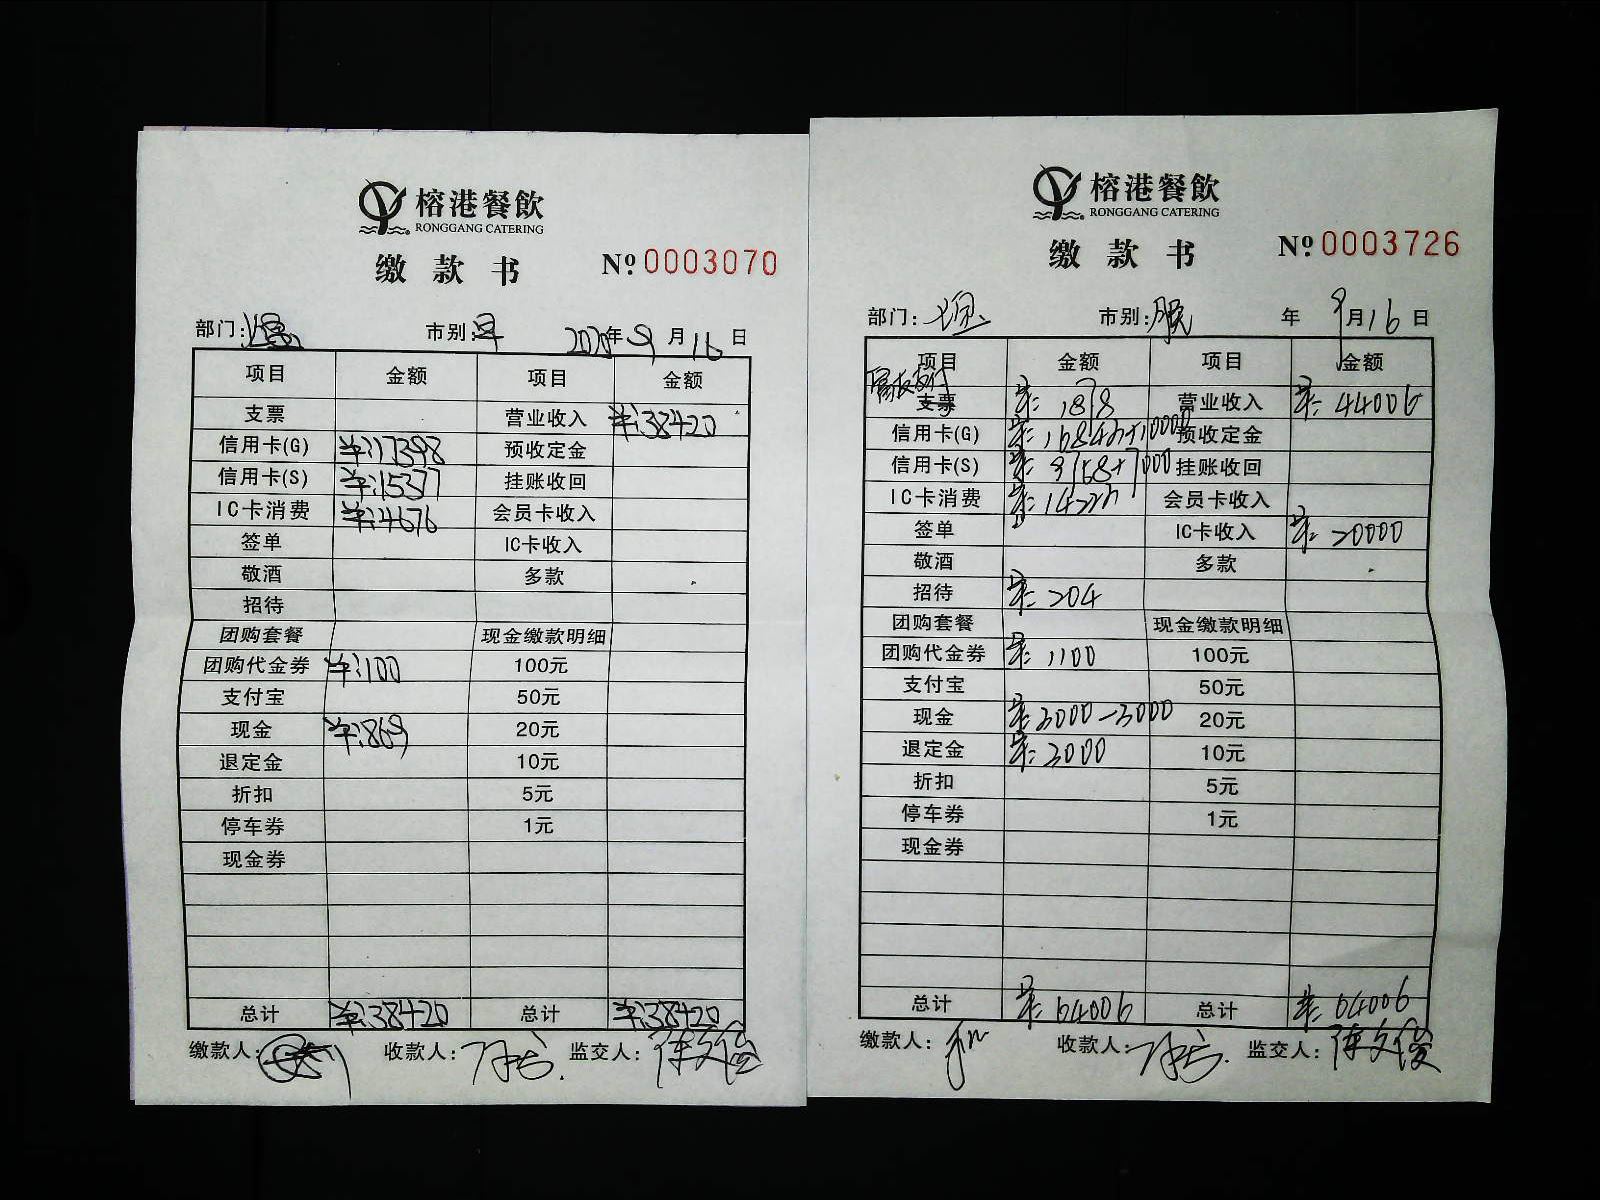 榕港餐飲
RONGGANG CATERING
缴款书 № 0003070
部门: 市别: 早 2020年9月16日
项目 金额 项目 金额
支票 营业收入 ¥:38420
信用卡(G) ¥:17398 预收定金
信用卡(S) ¥:15377 挂账收回
IC卡消费 ¥:4676 会员卡收入
签单 IC卡收入
敬酒 多款
招待
团购套餐 现金缴款明细
团购代金券 ¥:100 100元
支付宝 50元
现金 ¥:869 20元
退定金 10元
折扣 5元
停车券 1元
现金券
总计 ¥:38420 总计 ¥:38420
缴款人: 收款人: 监交人:
榕港餐飲
RONGGANG CATERING
缴款书 № 0003726
部门: 市别: 晚 年 9月16日
项目 金额 项目 金额
支票 1878 营业收入 44006
信用卡(G) 预收定金
信用卡(S) 9168+7000 挂账收回
IC卡消费 会员卡收入
签单 IC卡收入 20000
敬酒 多款
招待 204
团购套餐 现金缴款明细
团购代金券 1100 100元
支付宝 50元
现金 3000-3000 20元
退定金 3000 10元
折扣 5元
停车券 1元
现金券
总计 64006 总计 64006
缴款人: 收款人: 监交人: